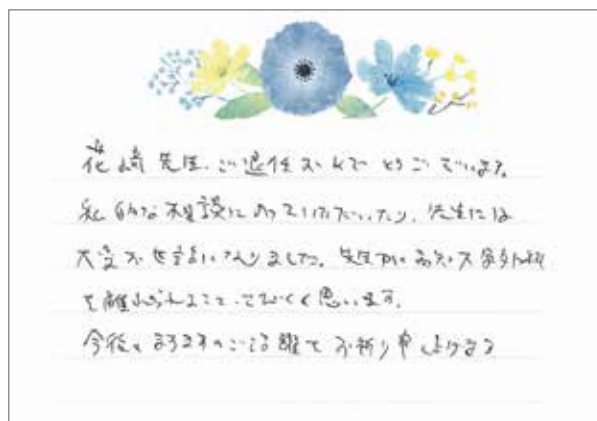 花崎先生、ご退任おめでとうございます。
私的な相談にのっていただいたり、先生には
大変お世話になりました。先生が
を離れられること、思います。
今後のますますのご活躍をお祈り申し上げます